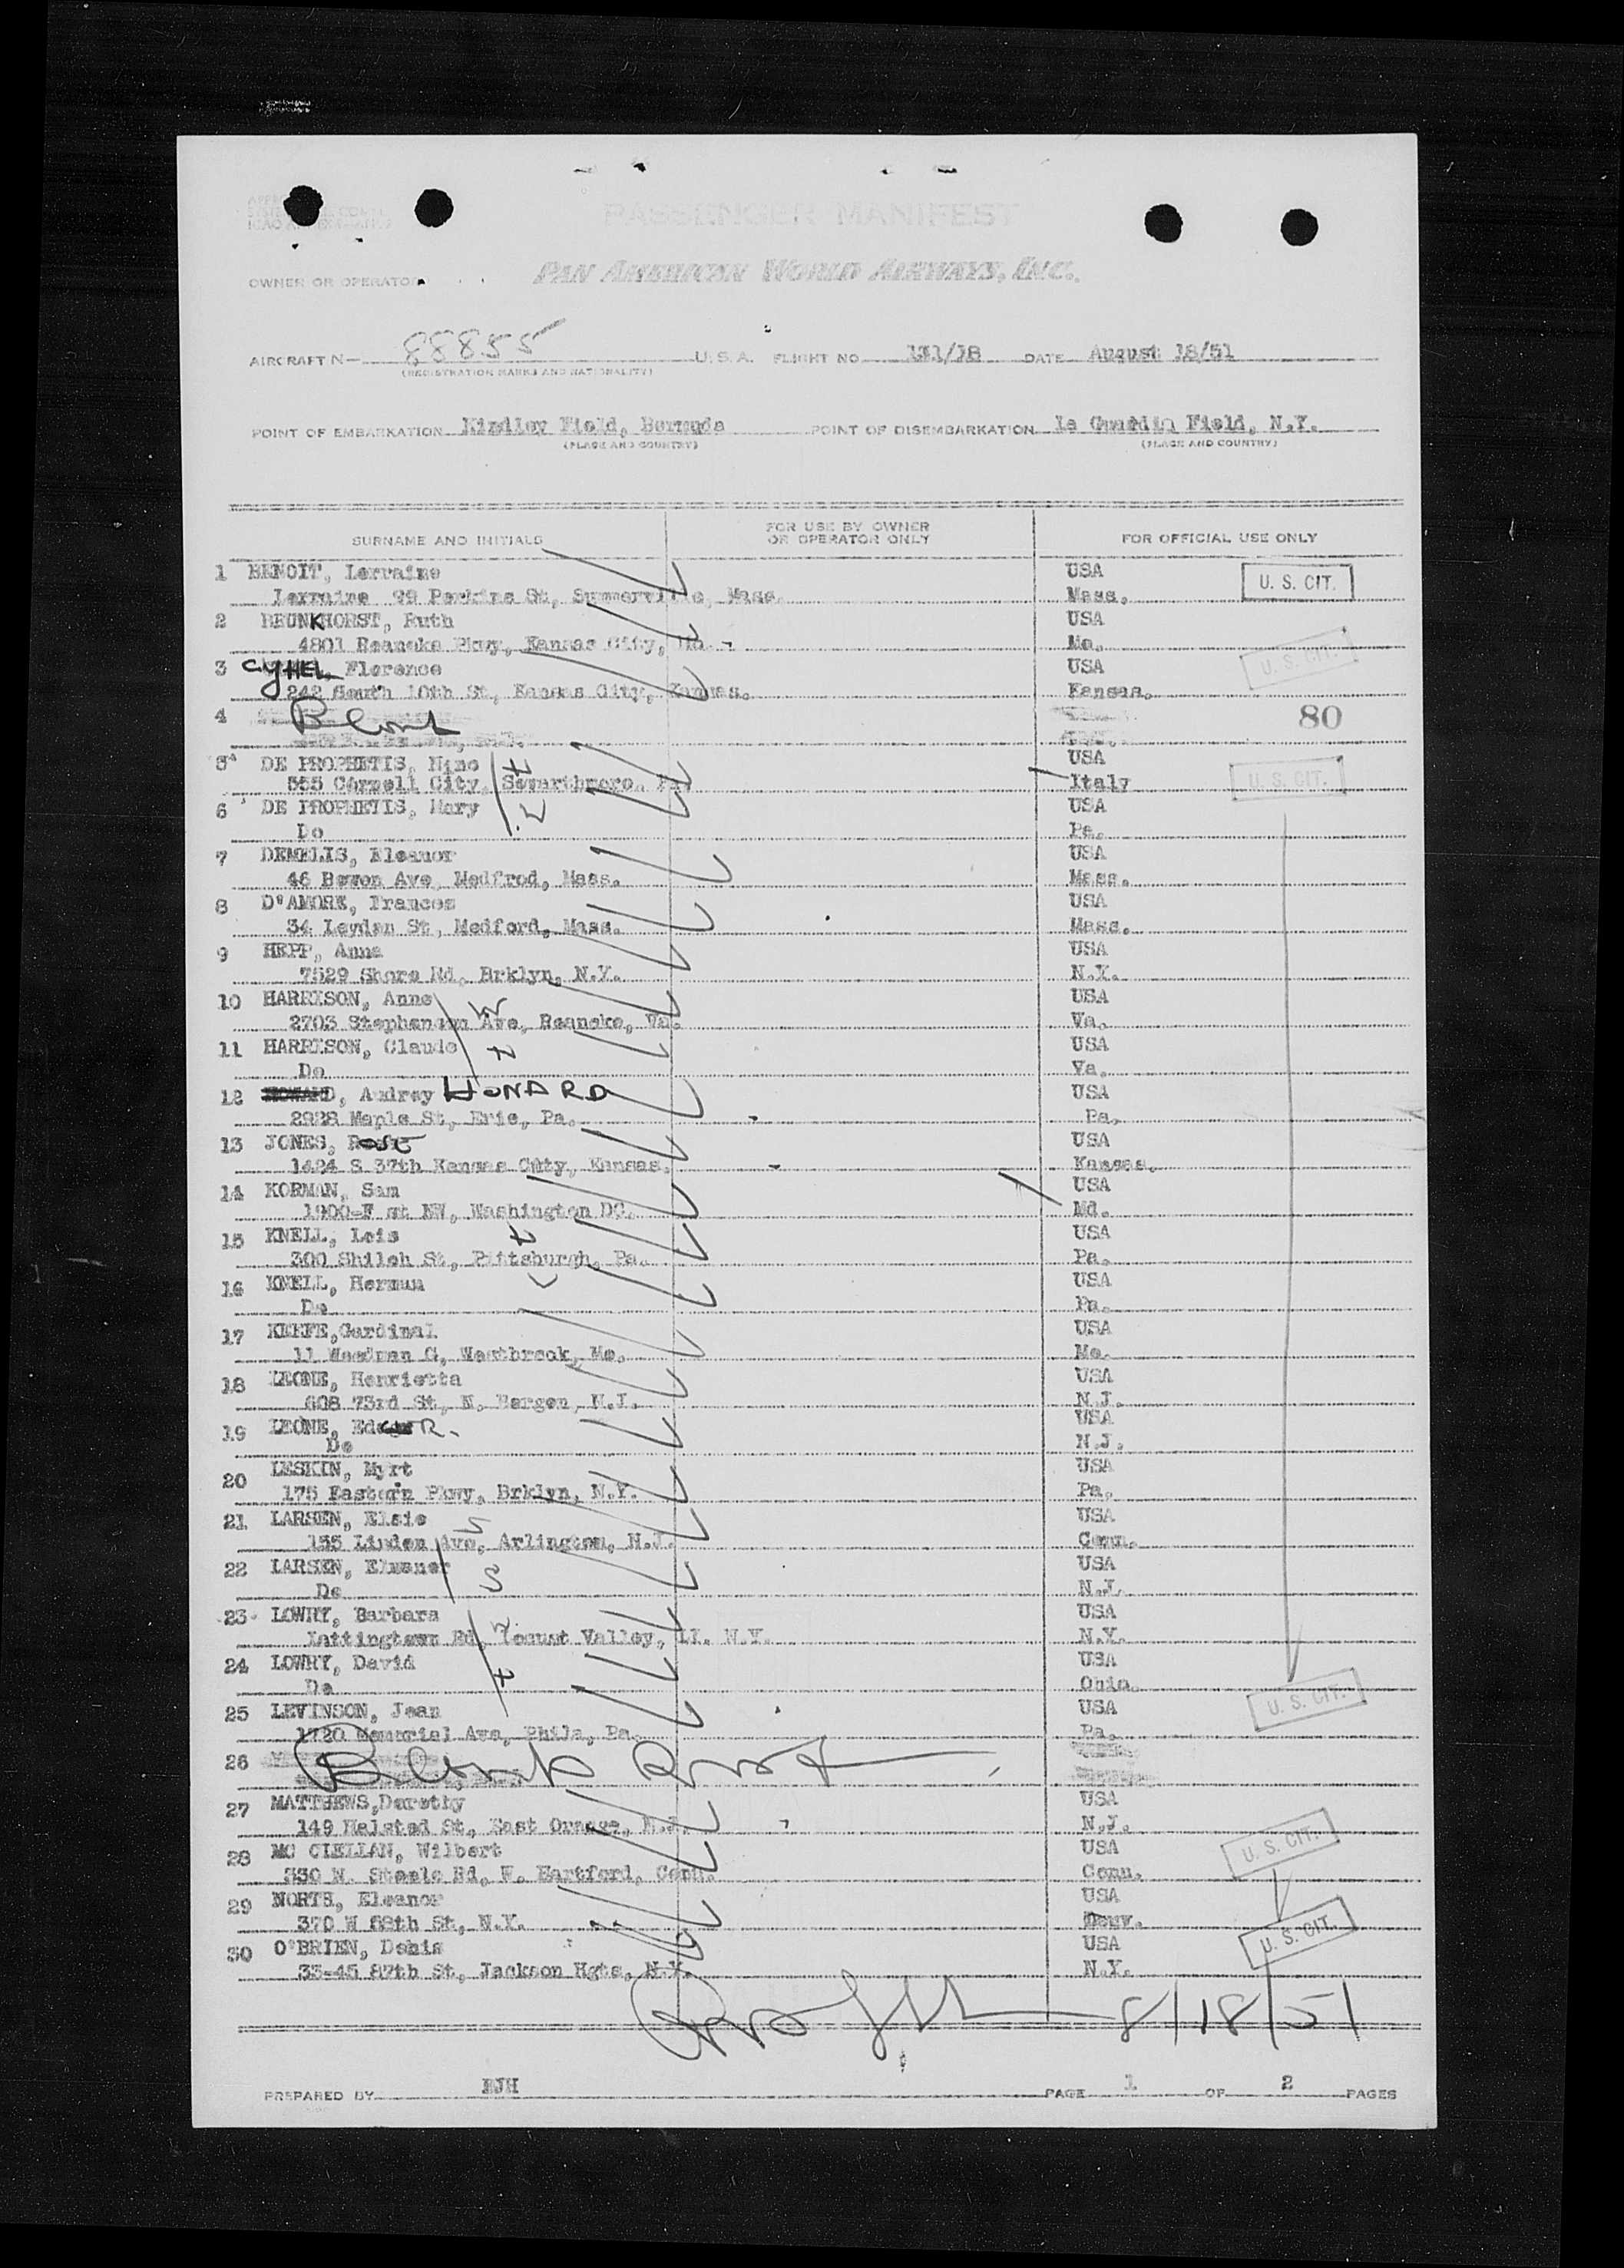 PASSENGER MANIFEST
OWNER OR OPERATOR
PAN AMERICAN WORLD AIRWAYS, INC.
AIRCRAFT N— 88855 U. S. A. FLIGHT NO 131/18 DATE August 18/51
(REGISTRATION MARKS AND NATIONALITY)
POINT OF EMBARKATION Kindley Field, Bermuda POINT OF DISEMBARKATION La Guardia Field, N.Y.
(PLACE AND COUNTRY) (PLACE AND COUNTRY)
SURNAME AND INITIALS FOR USE BY OWNER OR OPERATOR ONLY FOR OFFICIAL USE ONLY
1 BENOIT, Lorraine USA U. S. CIT.
Lorraine 29 Perkins St, Summerville, Mass. Mass.
2 BRUNKHORST, Ruth USA
4801 Roanoke Pkwy, Kansas City, Mo. Mo. U. S. CIT.
3 CYHEL, Florence USA
242 South 10th St, Kansas City, Kansas. Kansas.
4 Blank 80
5 DE PROPHETIS, Nino USA
555 Cornell City, Swarthmore, Pa. Italy U. S. CIT.
6 DE PROPHETIS, Mary USA
Do Pa.
7 DEMELIS, Eleanor USA
46 Bowen Ave, Medfrod, Mass. Mass.
8 D'AMORE, Frances USA
34 Leyden St, Medford, Mass. Mass.
9 HEPP, Anna USA
7529 Shore Rd, Brklyn, N.Y. N.Y.
10 HARRISON, Anne W USA
2703 Stephenson Ave, Roanoke, Va. Va.
11 HARRISON, Claude USA
Do Va.
12 Audrey HONARD USA
2928 Maple St, Erie, Pa. Pa.
13 JONES, Rose USA
1424 S 37th Kansas City, Kansas. Kansas.
14 KORMAN, Sam USA
1900-F st NW, Washington DC. Md.
15 KNELL, Lois USA
300 Shiloh St, Pittsburgh, Pa. Pa.
16 KNELL, Herman USA
Do Pa.
17 KEEFE, Cardinal USA
11 Woodman G, Westbrook, Me. Me.
18 LEONE, Henrietta USA
608 73rd St, N. Bergen, N.J. N.J.
19 LEONE, USA
Do N.J.
20 LESKIN, Myrt USA
175 Eastern Pkwy, Brklyn, N.Y. Pa.
21 LARSEN, Elsie S USA
155 Linden Ave, Arlington, N.J. Conn.
22 LARSEN, S USA
Do N.J.
23 LOWRY, Barbara USA
Lattingtown Rd, Locust Valley, LI. N.Y. N.Y.
24 LOWRY, David USA
Do Ohio. U. S. CIT.
25 LEVINSON, Jean USA
1720 Memorial Ave, Phila, Pa. Pa.
26 Blank
27 MATTHEWS, Dorothy USA
149 Halsted St, East Orange, N.J. N.J.
28 MC CLELLAN, Wilbert USA U. S. CIT.
330 N. Steele Rd, W. Hartford, Conn. Conn.
29 NORTH, Eleanor USA
370 W 58th St, N.Y. U. S. CIT.
30 O'BRIEN, Denis USA
33-45 87th St, Jackson Hgts, N.Y. N.Y.
8/18/51
PREPARED BY EJH PAGE 1 OF 2 PAGES